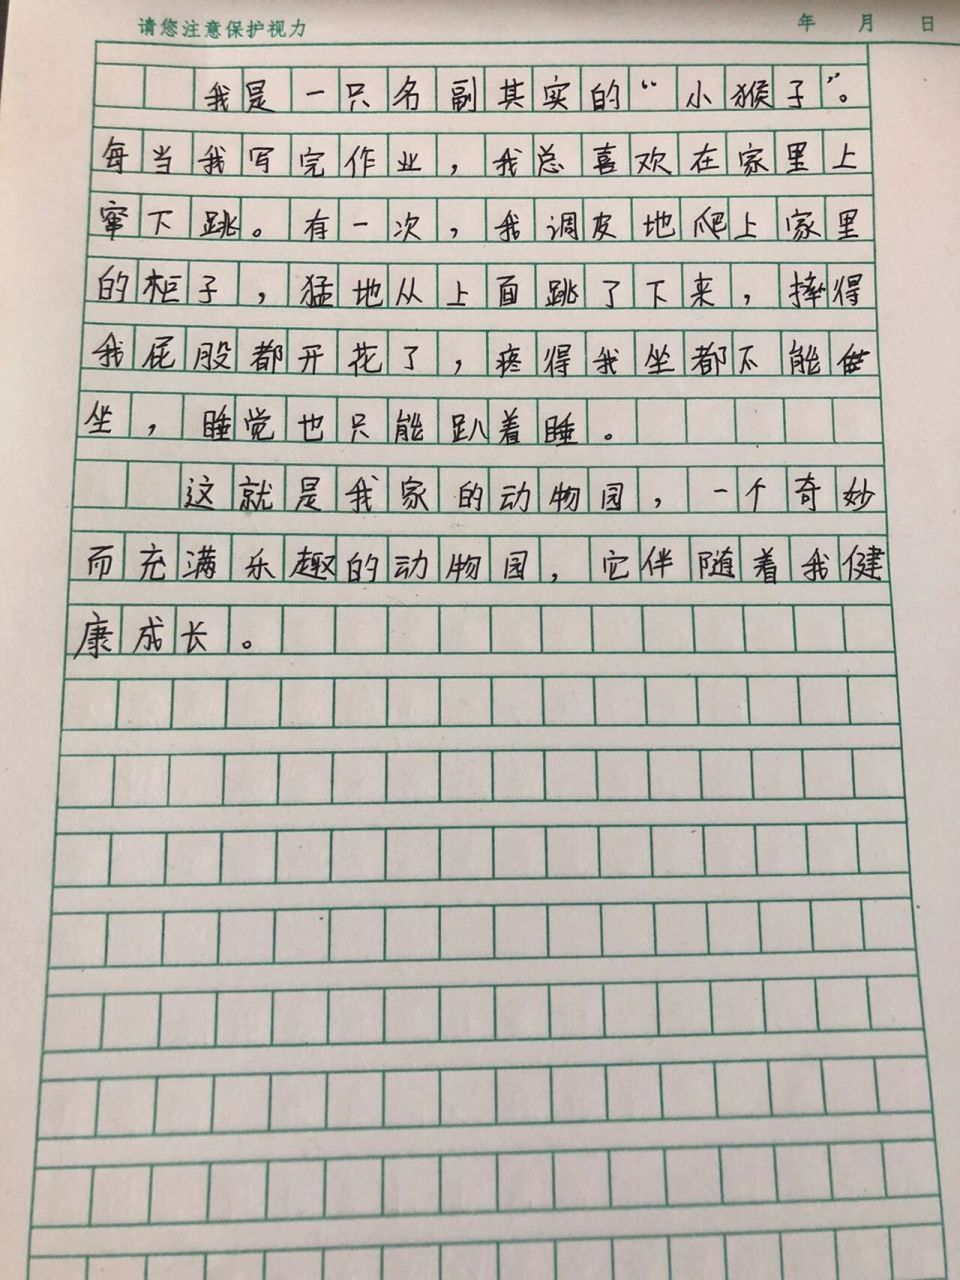 请您注意保护视力 年 月 日
我是一只名副其实的“小猴子”。
每当我写完作业，我总喜欢在家里上
窜下跳。有一次，我调皮地爬上家里
的柜子，猛地从上面跳了下来，摔得
我屁股都开花了，疼得我坐都不能
坐，睡觉也只能趴着睡。
这就是我家的动物园，一个奇妙
而充满乐趣的动物园，它伴随着我健
康成长。